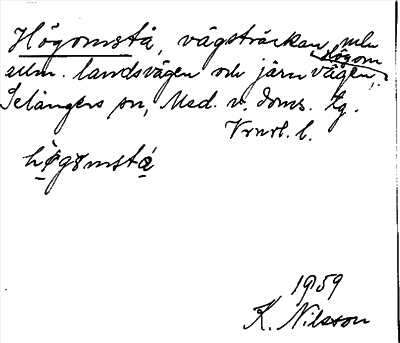 Högomstå, vägsträckan mln Högom
allm. landsvägen och järnvägen.
Selångers sn, Med. v. doms. tg.
Vrnrl. l.
högomstå
1959
K. Nilsson